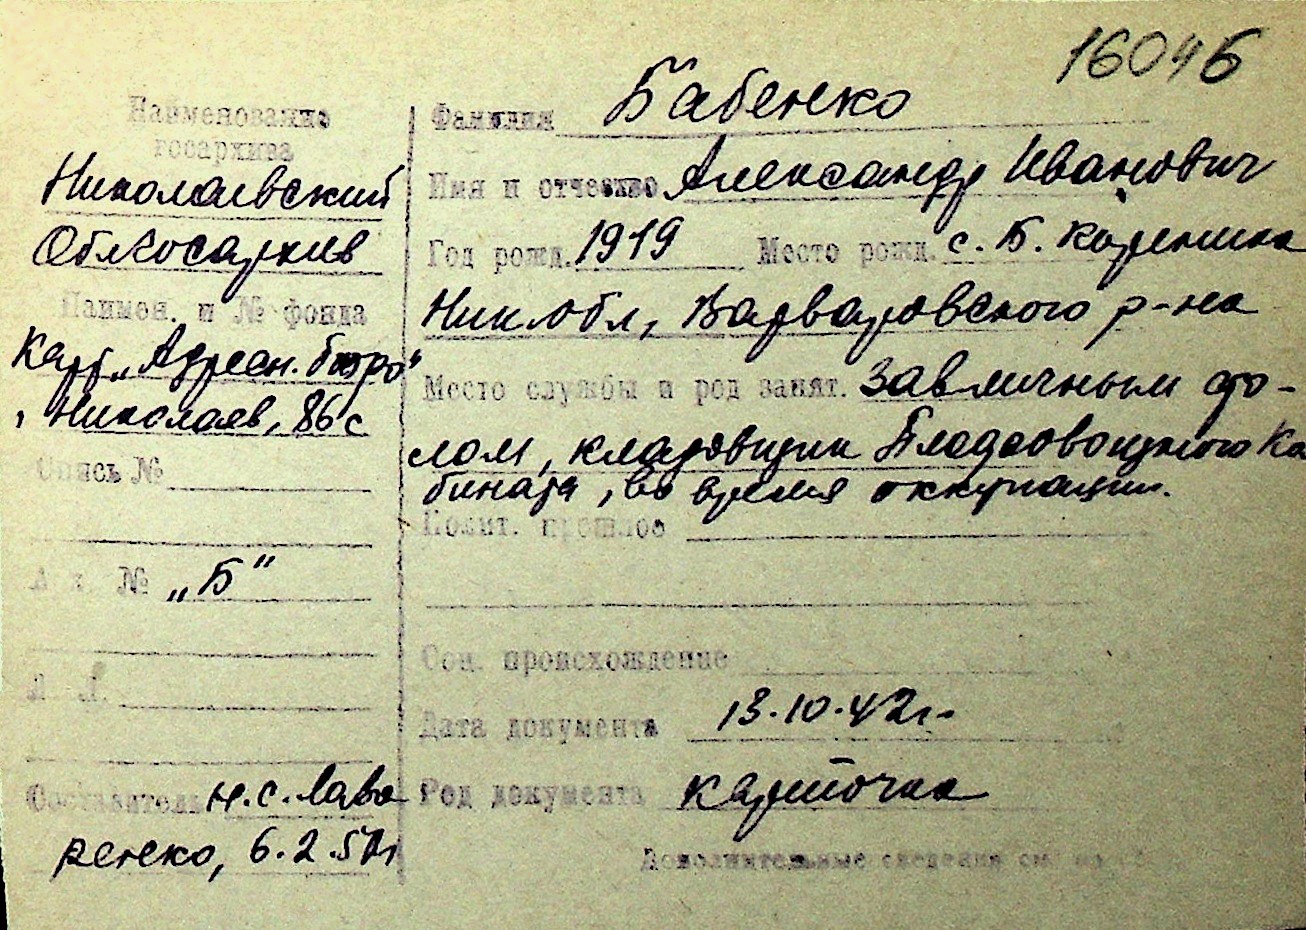 16046
Наименование
госархива
Николаевский
Облгосархив
Наимен. и № фонда
Карт „Адресн. бюро"
г Николаев, 86 с
Опись №
№ „Б"
Составитель Н.С. Лава
ренко, 6.2.51г
Фамилия Бабенко
Имя и отчество Александр Иванович
Год рожд. 1919 Место рожд. с. Б. Корениха
Ник. Обл, Варваровского р-на
Место службы и род занят. Завличным сто-
лом, кладовщик Плодоовощного Ко
бината, во время оккупации.
Полит. прошлое
Соц. происхождение
Дата документа 13.10.42г.
Род документа карточка
Дополнительные сведения см на об